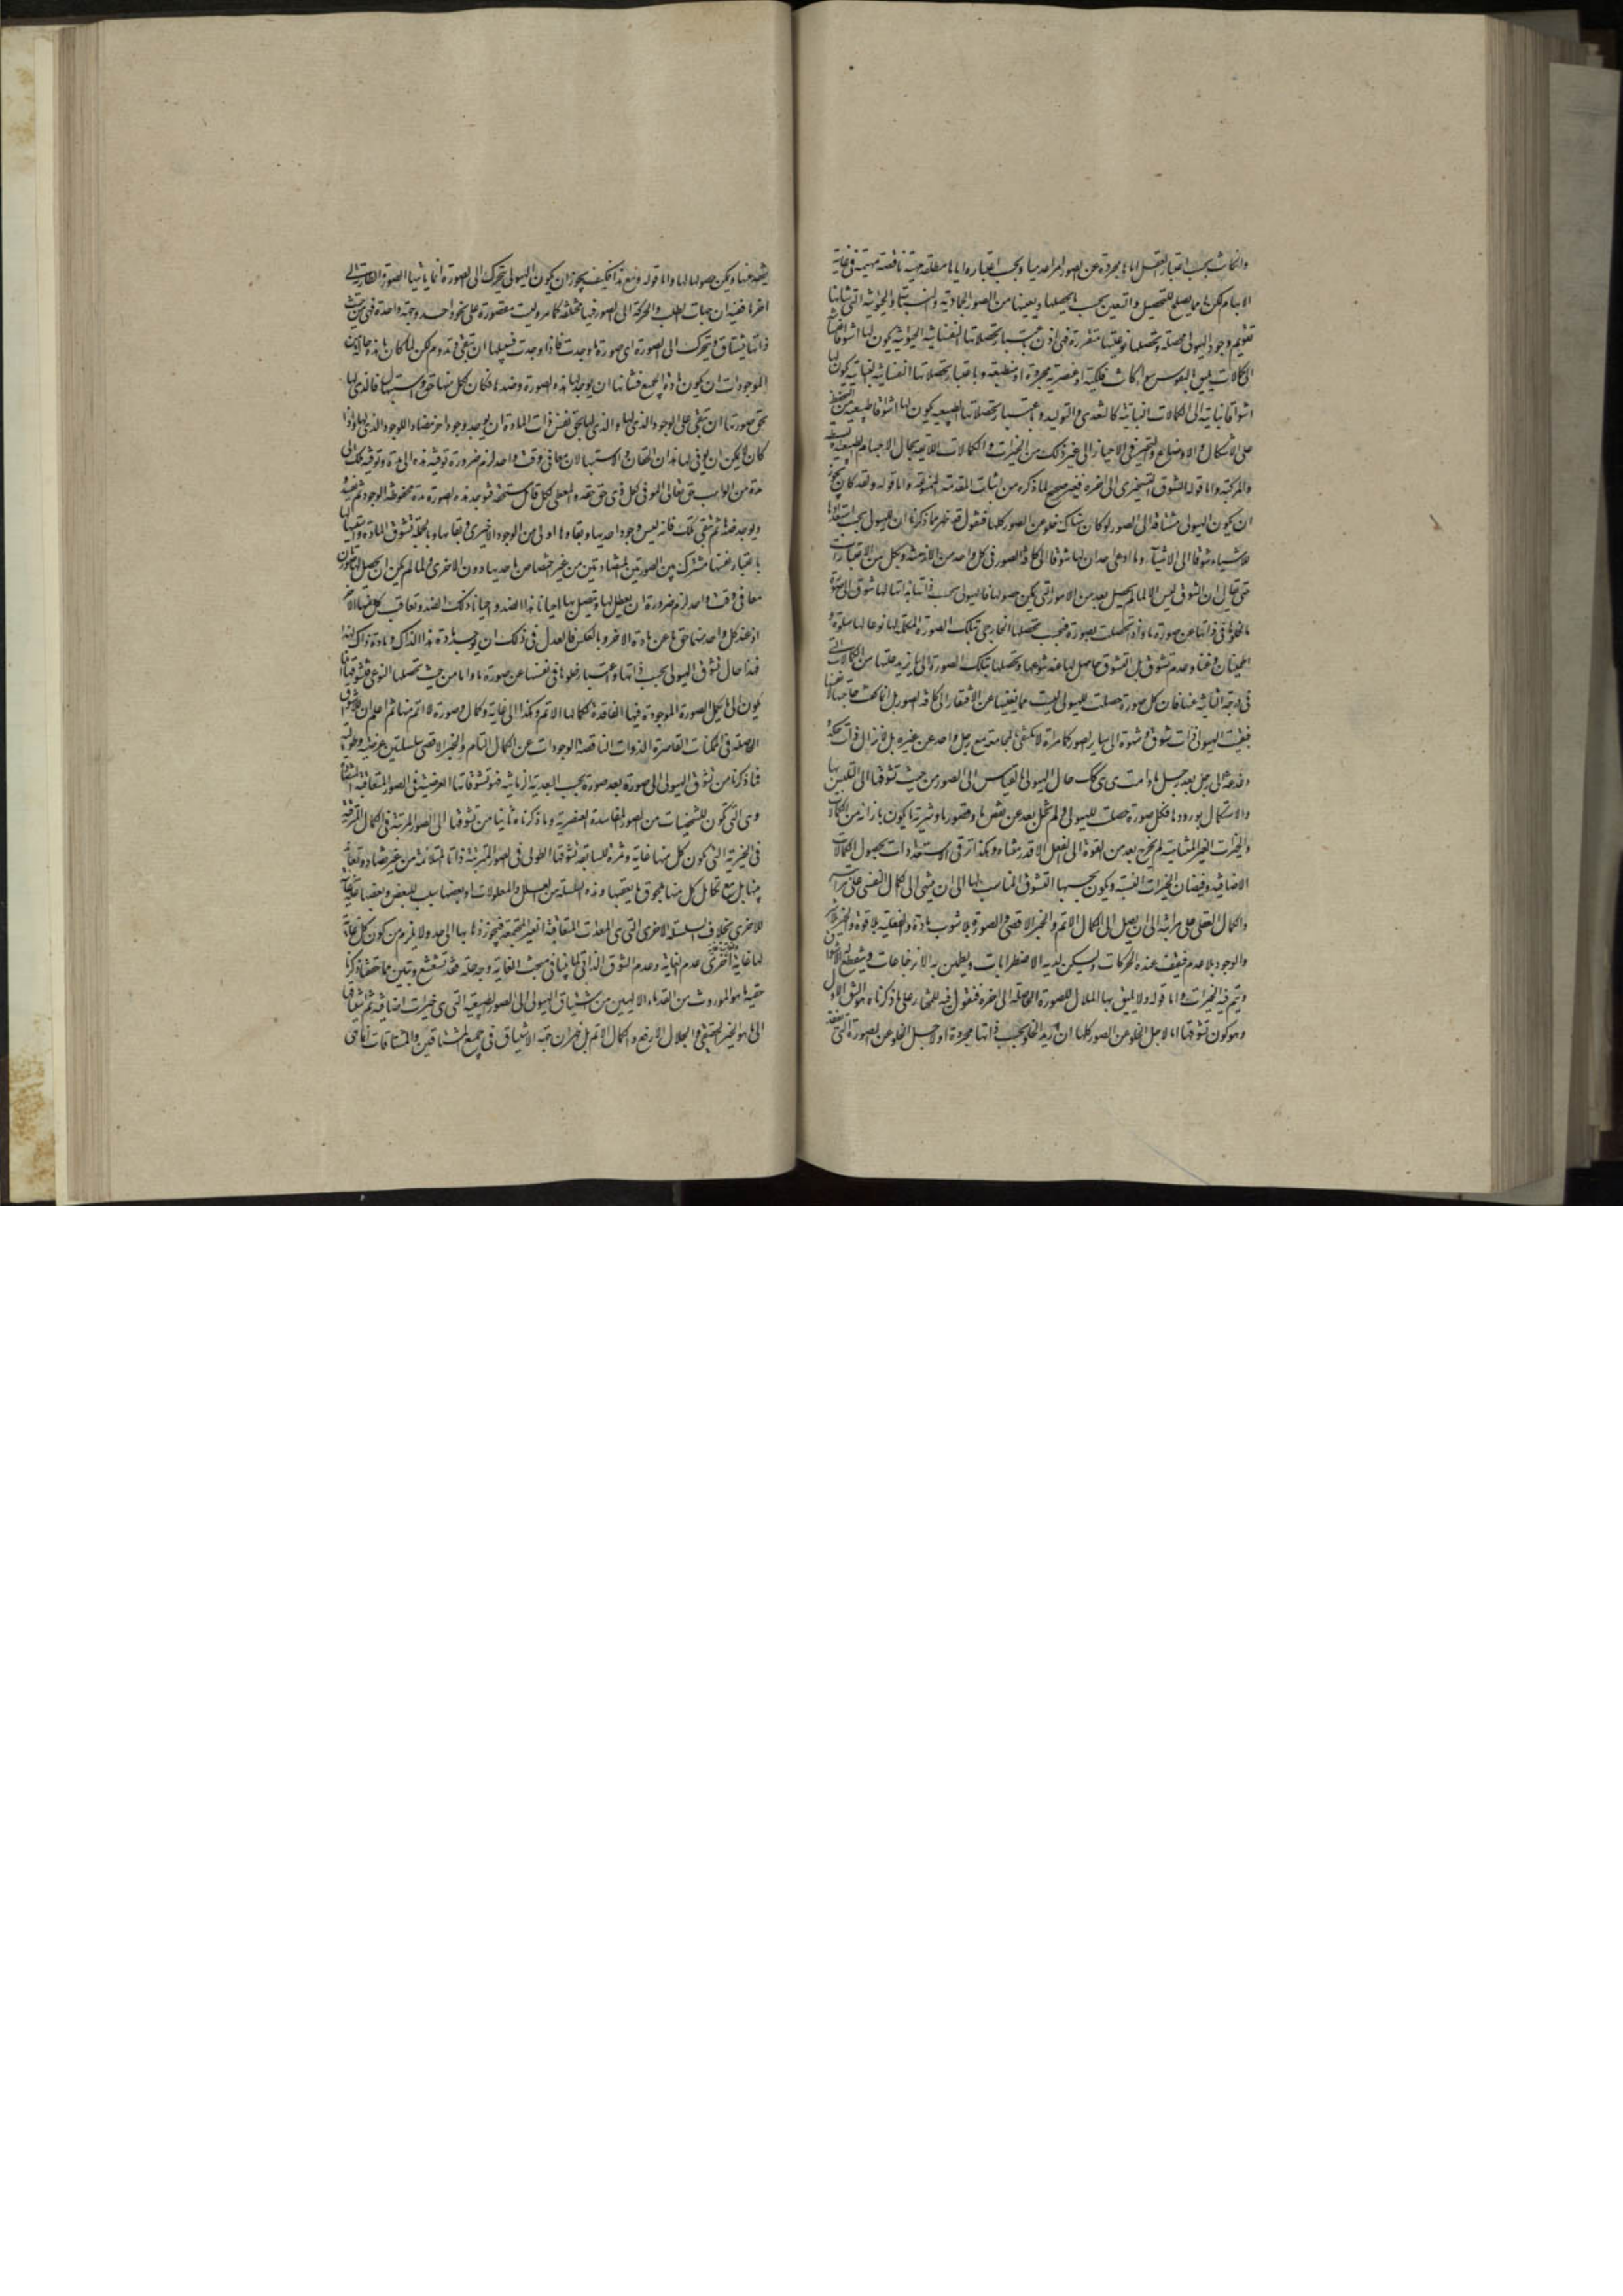 وان كانت بحسب اعتبار العقل اياها مجردة عن الصور امرا عدميا وبحسب اعتباره اياها مطلقة جنسية ناقصة مبهمة في غاية
الابهام لكن لها ما يصلح للتحصيل والتعين بحسب ما يحصلها ويعينها من الصور الجمادية والنباتية والحيوانية التي شانها
تقويم وجود الهيولى محصلة وتحصيلها نوعيتها متقررة فهي اذن باعتبار تحصلاتها النفسانية الحيوانية يكون لها اشواقا
الى كمالات يليق بالنفوس سواء كانت فلكية او عنصرية مجردة او منطبعة وباعتبار تحصلاتها النفسانية النباتية يكون لها
اشواقا نباتية الى الكمالات النباتية كالتغذي والتوليد وباعتبار تحصلاتها الطبيعية يكون لها اشواقا طبيعية من التحفظ
على الاشكال والاوضاع والتحيز في الاحياز الى غير ذلك من الخيرات والكمالات اللايقة بحال الاجسام الطبيعية البسيطة
والمركبة واما قوله الشوق التسخيري الى اخره فغير صحيح لما ذكره من اثبات المقدمة الممنوعة واما قوله ولقد كان يجوز
ان يكون الهيولى مشتاقة الى الصور لو كان هناك خلو من الصور كلها فنقول قد ظهر مما ذكرنا ان للهيولى بحسب استعدادها
للاشياء شوقا الى الاشياء وما ادعى احد ان لها شوقا الى كافة الصور في كل واحد من الازمنة وبكل من الاعتبارات
حتى يقال ان الشوق ليس الا لما لم يحصل بعد من الامور التي يمكن حصولها فالهيولى بحسب ذاتها بذاتها لها شوق الى صورة
ما لخلوها في ذاتها عن صورة ما واذا تحصلت بصورة فبحسب تحصلها الخارجي بتلك الصورة المكملة لها نوعا لها سلوة و
اطمينان وغنا وعدم تشوق بل التشوق حاصل لها عند تنوعها وتحصلها بتلك الصورة الى ما يزيد عليها من الكمالات التي
في الدرجة الثانية عنها فان كل صورة حصلت للهيولى ليست مما يغنيها عن الافتقار الى كافة الصور بل انما بحت حاجتها الا
فبقيت الهيولى ذات شوق وشهوة الى ساير الصور كامراة لا يكتفي بمجامعة رجل واحد عن غيره بل لا يزال ذات حكة
ودغدغة الى رجل بعد رجل ما دامت هي هي كك حال الهيولى بالقياس الى الصور من حيث تشوقها الى التلبس بها
والاستكمال بورودها فكل صورة حصلت للهيولى ولم تخل بعد عن نقص ما وقصور ما وشرية ما يكون بازائه من الكمالات
والخيرات الغير المتناهية لم يخرج بعد من القوة الى الفعل الا قدر متناه وهكذا ترقى الاستعدادات بحصول الكمالات
الاضافية وفيضان الخيرات النسبية ويكون بحسبها التشوق المناسب لها الى ان ينتهي الى الكمال النفسي على مراتبه
والكمال العقلي على مراتبه الى ان يصل الى الكمال الاتم والخير الاقصى والصورة بلا شوب مادة والفعلية بلا قوة والخير بلا شر
والوجود بلا عدم فيقف عنده الحركات ويسكن لديه الاضطرابات ويطمئن به الانزعاجات وينقطع اليه الاشواق
ويتم فيه الخيرات واما قوله ولا يليق بها الملال للصورة الحاصلة الى اخره فنقول فيه المختار على ما ذكرناه هو الشق الاول
وهو كون تشوقها اما لاجل الخلو عن الصور كلها ان اريد الخلو بحسب ذاتها مجردة او لاجل الخلو عن الصورة التي تفقد
يفقد عنها ويمكن حصولها لها واما قوله ومع هذا فكيف يجوز ان يكون الهيولى تتحرك الى الصورة انما ياتيها الصور الطارية الى
اخرها ففيه ان جهات الطلب والحركة الى الصور فيها مختلفة كما مر وليست مقصورة على نحو واحد وجهة واحدة فهي من حيث
ذاتها يشتاق ويتحرك الى الصورة اي صورة ما وجدت فاذا وجدت فسبيلها ان تبقى وتدوم لكن لما كان ما هذه حاله من
الموجودات ان يكون مادة الجميع فشانها ان يوجد لها هذه الصورة وضدها فكان لكل منها حق واستيهال فالذي لها
بحق صورتها ان تبقى على الوجود الذي لها والذي لها بحق نفس ذات المادة ان يوجد وجودا اخر مضادا للوجود الذي لها واذا
كان لا يمكن ان يوفى لها هذان الحقان والاستيهالان معا في وقت واحد لزم ضرورة توفية هذه الى مدة وتوفية تلك الى
مدة من الواجب تعالى الموفي لكل ذي حق حقه المعطي لكل قابل مستحقه فيوجد هذه الصورة مدة محفوظة الوجود ثم يفسد
ويوجد ضده ثم تبقى تلك فانه ليس وجود احديهما وبقاوها اولى من الوجود الاخرى وبقائها وبالجملة تشوق المادة واستيهالها
باعتبار نفسها مشترك بين الصورتين المتضادتين من غير اختصاص باحديهما دون الاخرى ولما لم يكن ان يحصل لها الصورتان
معا في وقت واحد لزم ضرورة ان يعطى لها ويتصل بها احيانا هذا الضد واحيانا ذلك الضد وتعاقب كل منها الاخر
اذ عند كل واحد منهما حق ما عن مادة الاخر وبالعكس فالعدل في ذلك ان يوجد مادة هذا لذاك ومادة ذاك لهذا
فهذا حال تشوق الهيولى بحسب ذاتها واعتبار خلوها في نفسها عن صورة ما واما من حيث تحصلها النوعي فتشوقها انما
يكون الى ما يكمل الصورة الموجودة فيها الفاقدة لكمالها الاتم وهكذا الى غاية وكمال وصورة لا اتم منها ثم اعلم ان للاشواق
الحاصلة في الممكنات القاصرة الذوات الناقصة الوجودات عن الكمال التام والخير الاقصى سلسلتين عرضية وطولية
فما ذكرنا من تشوق الهيولى الى صورة بعد صورة بحسب البعدية الزمانية فهو تشوقاتها العرضية في الصور المتعاقبة المتضادة
وهي التي تكون للشخصيات من الصور الفاسدة العنصرية وما ذكرناه ثانيا من تشوقها الى الصور المرتبة في الكمال المترقية
في الخيرية التي يكون كل منها غاية وثمرة للسابقة تشوقها الطولى في الصور المترتبة ذاتا المتلائمة من غير تضاد وتعاند
بينها بل مع تكامل كل منها بلحوق ما يعقبها وهذه السلسلة من العلل والمعلولات او بعضها سبب للبعض وبعضها غاية
للاخرى بخلاف السلسلة الاخرى التي هي المعدات المتعاقبة الغير المجتمعة فيجوز ذهابها الى حد ولا يلزم من كون كل غاية
لها غاية اخرى عدم الغاية وعدم الشوق الذاتي لما بينا في مبحث الغاية وجه حله فقد تشعشع وتبين مما حققنا وذكرنا
حقية ما هو الموروث من القدماء الالهيين من اشتياق الهيولى الى الصور الطبيعية التي هي خيرات اضافية ثم اشتياقها
الى ما هو الخير الحقيقي والجلال الارفع والكمال الاتم بل ظهر ان جهة الاشتياق في جميع المشتاقين والمتشاقات انما هي